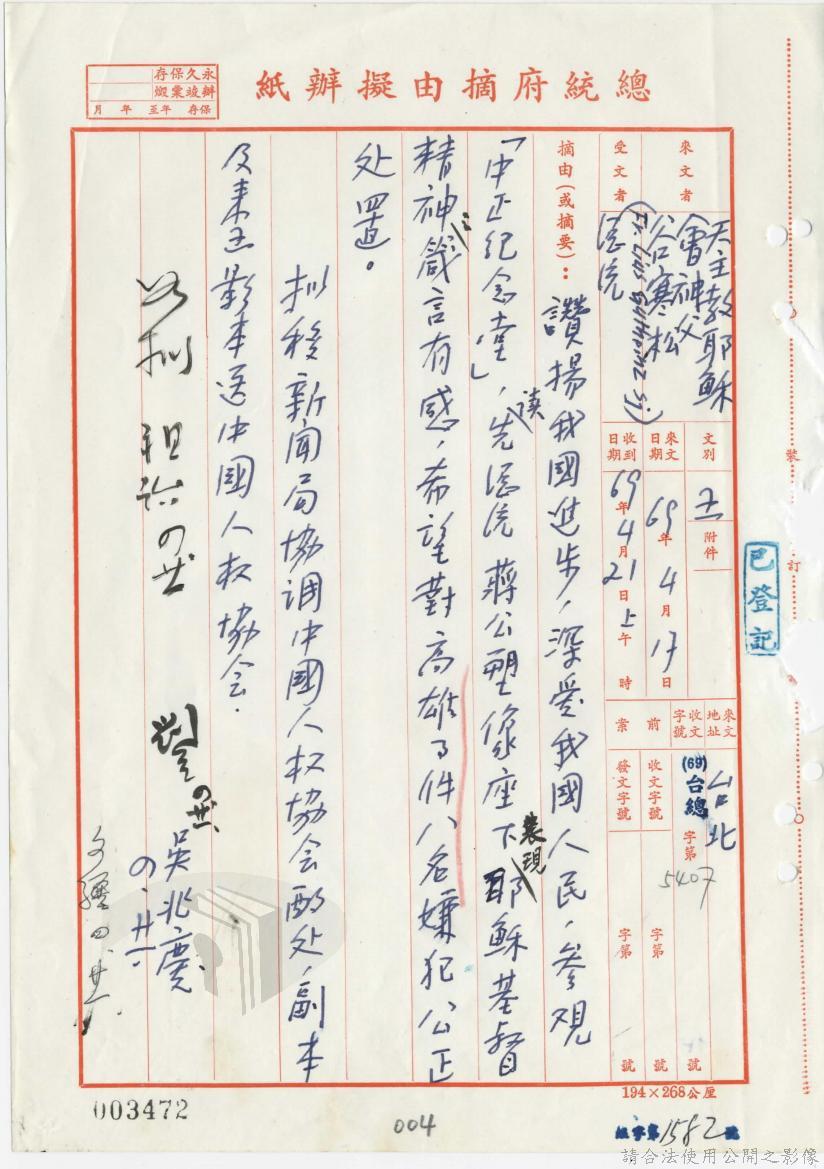 總統府摘由擬辦紙
永久保存
辦竣案燬
保存 年至 年 月
來文者
天主教耶穌
會神父
谷寒松
(Fr. Luis Gutheinz SJ)
受文者
總統
文別
附件
來文日期
69年4月17日
收到日期
69年4月21日上午 時
來文地址
台北
收文字號
(69)台總 字第 5407 號
前案
收文字號 字第 號
發文字號 字第 號
摘由(或摘要):
讚揚我國進步,深愛我國人民,參觀
「中正紀念堂」,先總統 蔣公塑像座下耶穌基督
讀
表現
精神箴言有感,希望對高雄事件八名嫌犯公正
之
处置。
拟移新聞局協調中國人权協会酌处,副本
及来函影本送中國人权協会.
劉
吳兆慶
四.廿一.
已登記
裝
訂
194×268公厘
003472
004
1582
請合法使用公開之影像